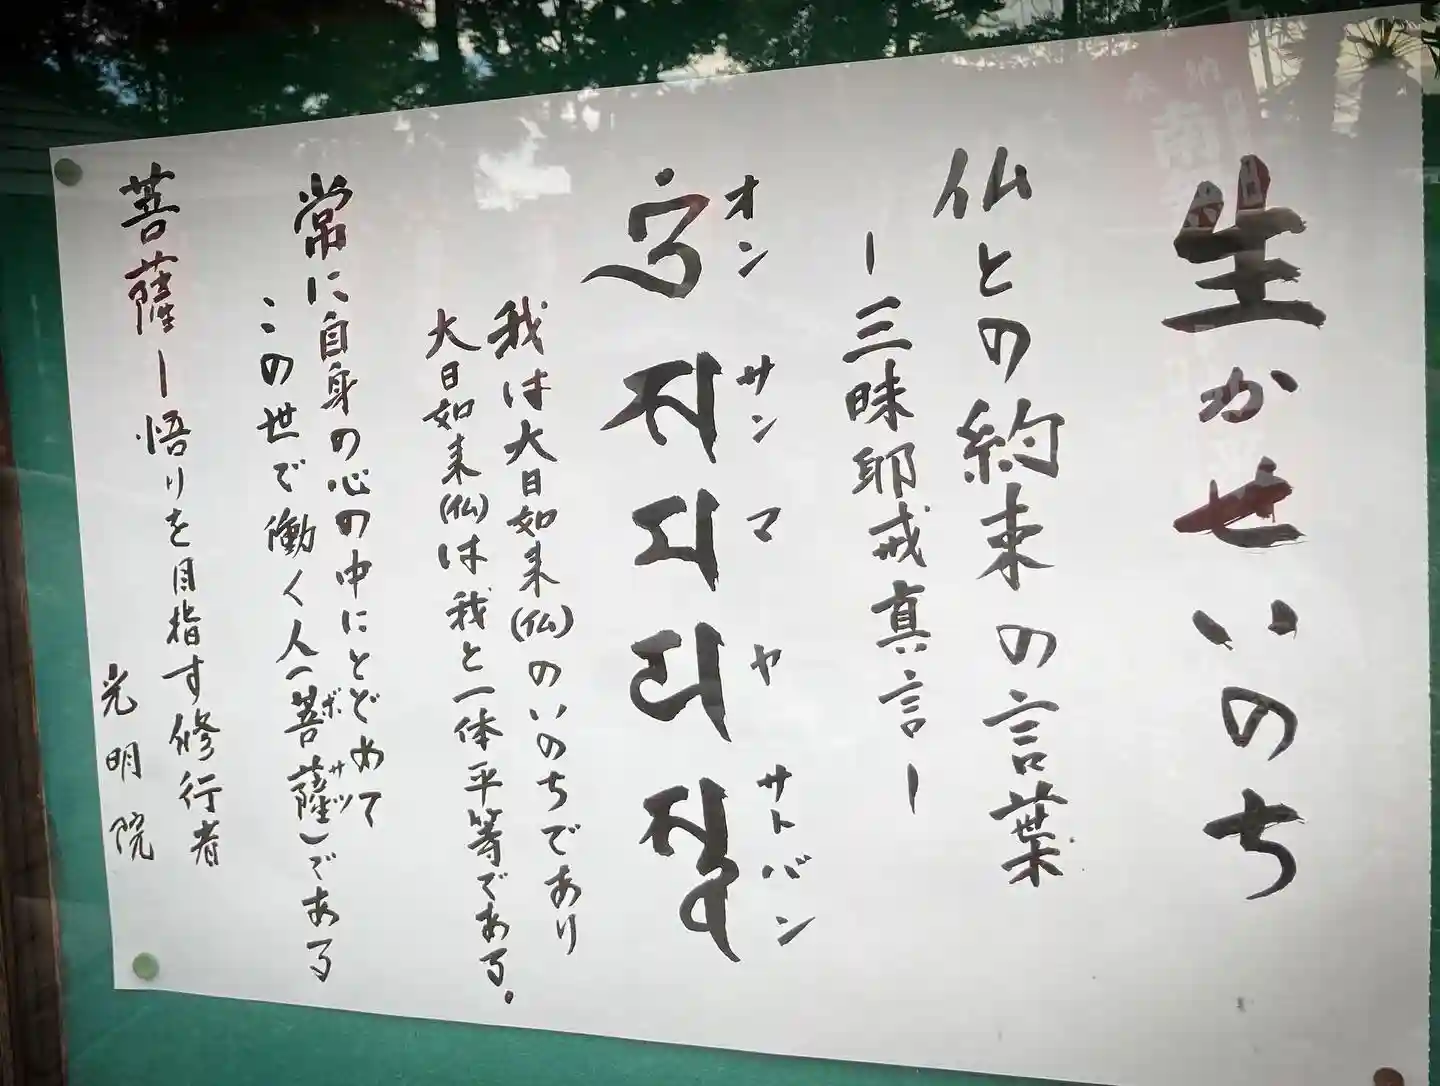 生かせいのち
仏との約束の言葉
ー三昧耶戒真言ー
オン サン マ ヤ サトバン
我は大日如来(仏)のいのちであり
大日如来(仏)は我と一体平等である。
常に自身の心の中にとどめて
ボサツ
この世で働く人(菩薩)である
菩薩ー悟りを目指す修行者
光明院